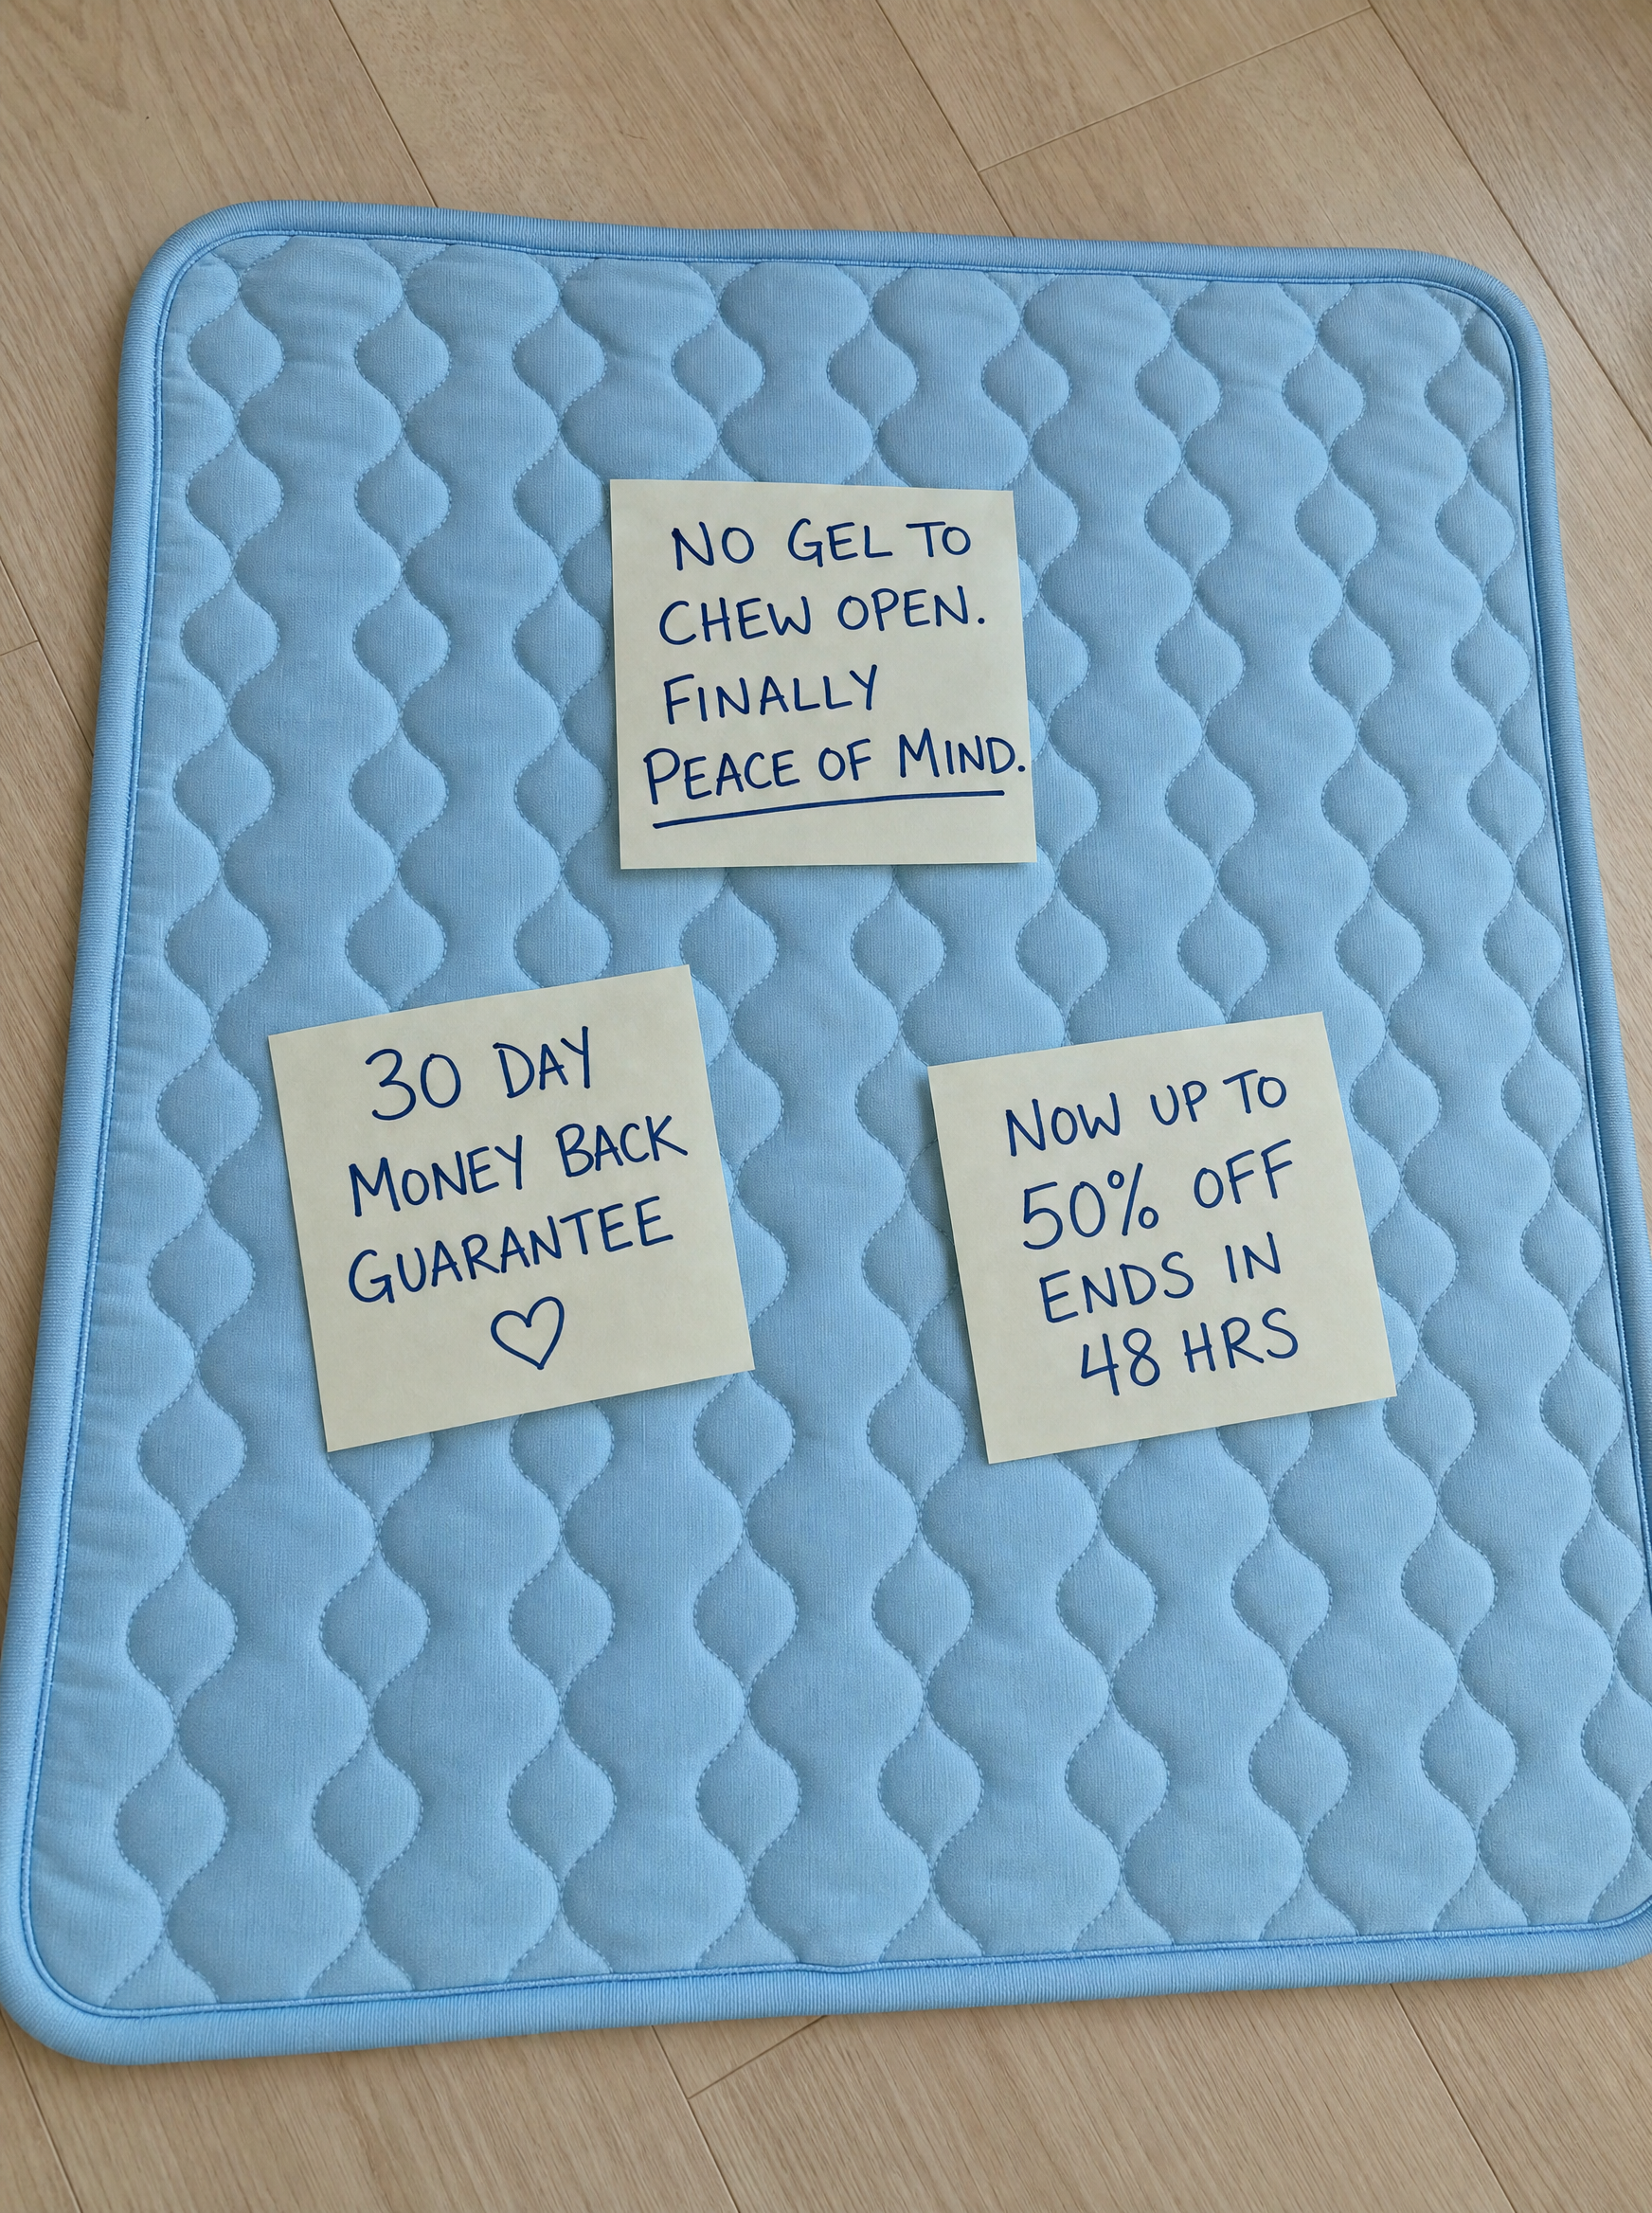 NO GEL TO
CHEW OPEN.
FINALLY
PEACE OF MIND.
30 DAY
MONEY BACK
GUARANTEE
NOW UP TO
50% OFF
ENDS IN
48 HRS